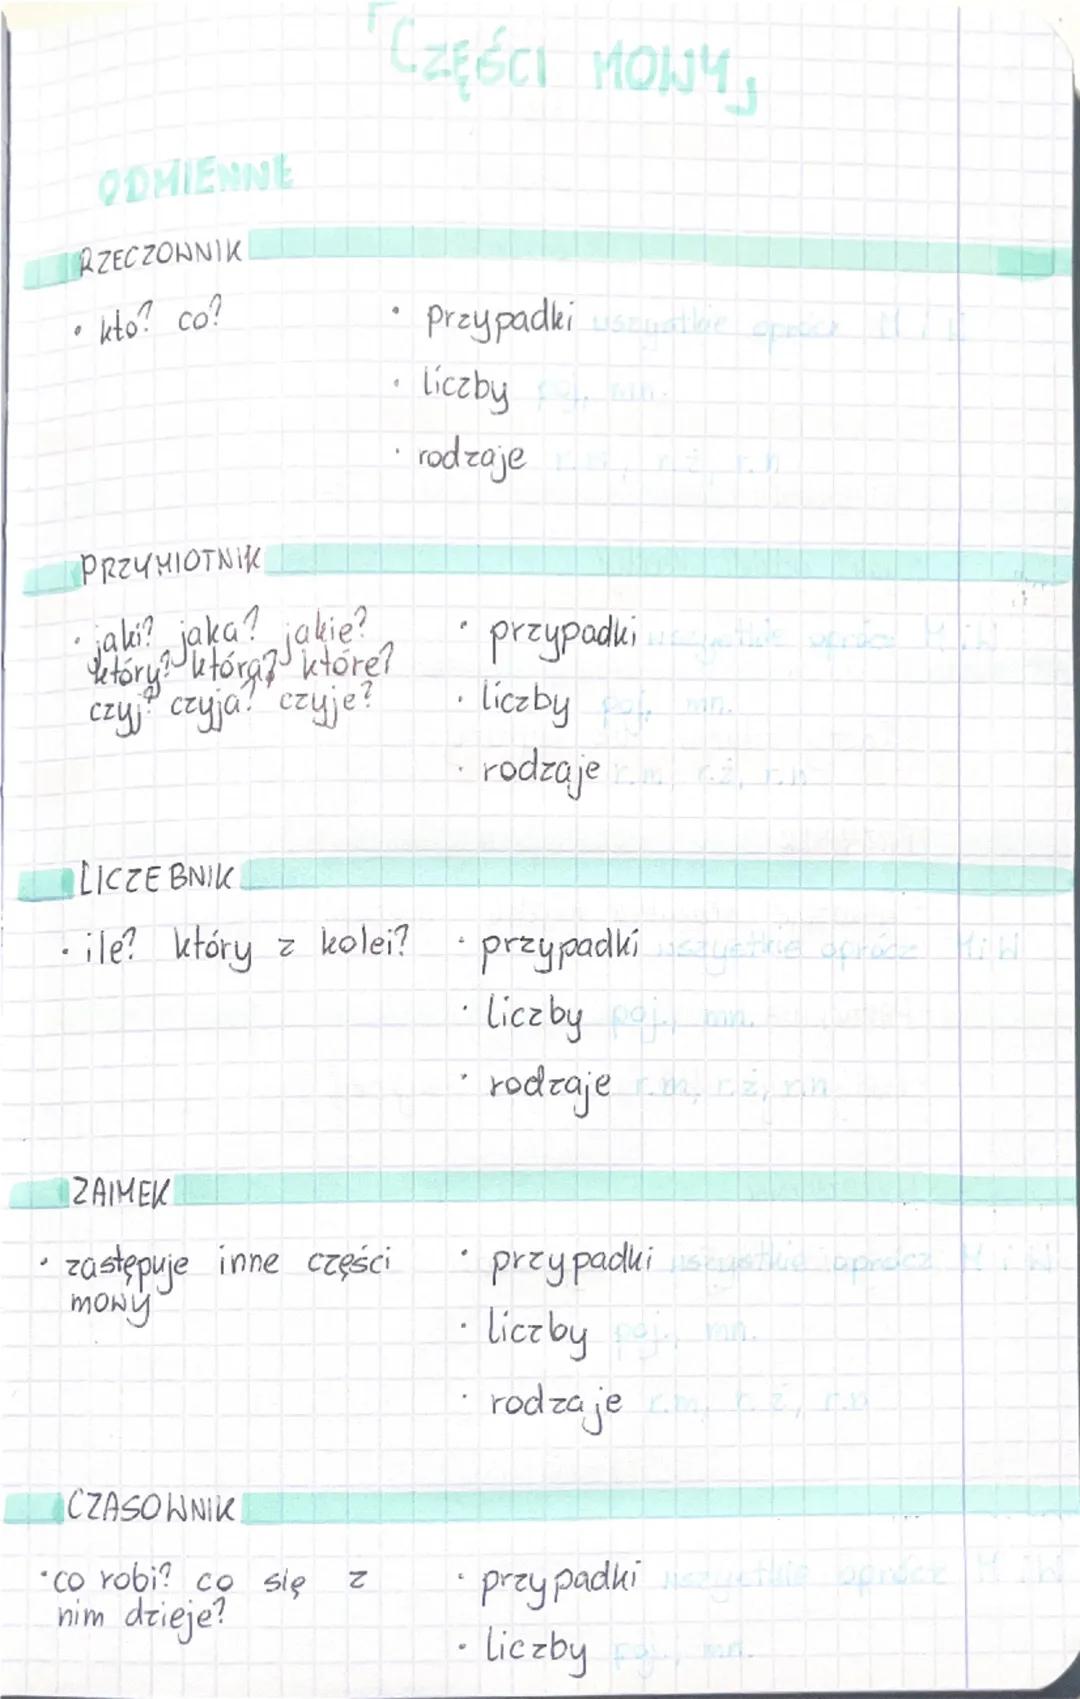 「CZĘŚCI MOWY」
ODMIENNE
RZECZOWNIK
• kto? co?
• przypadki wszystkie oprócz M i W
• liczby poj., mn.
• rodzaje r.m, r.ż, r.n
PRZYMIOTNIK
• jaki? jaka? jakie?
który? która? które?
czyj? czyja? czyje?
• przypadki wszystkie oprócz M i W
• liczby poj., mn.
• rodzaje r.m, r.ż, r.n
LICZEBNIK
• ile? który z kolei?
• przypadki wszystkie oprócz M i W
• liczby poj., mn.
• rodzaje r.m, r.ż, r.n
ZAIMEK
• zastępuje inne części
mowy
• przypadki wszystkie oprócz M i W
• liczby poj., mn.
• rodzaje r.m, r.ż, r.n
CZASOWNIK
• co robi? co się z
nim dzieje?
• przypadki wszystkie oprócz M i W
• liczby poj., mn.